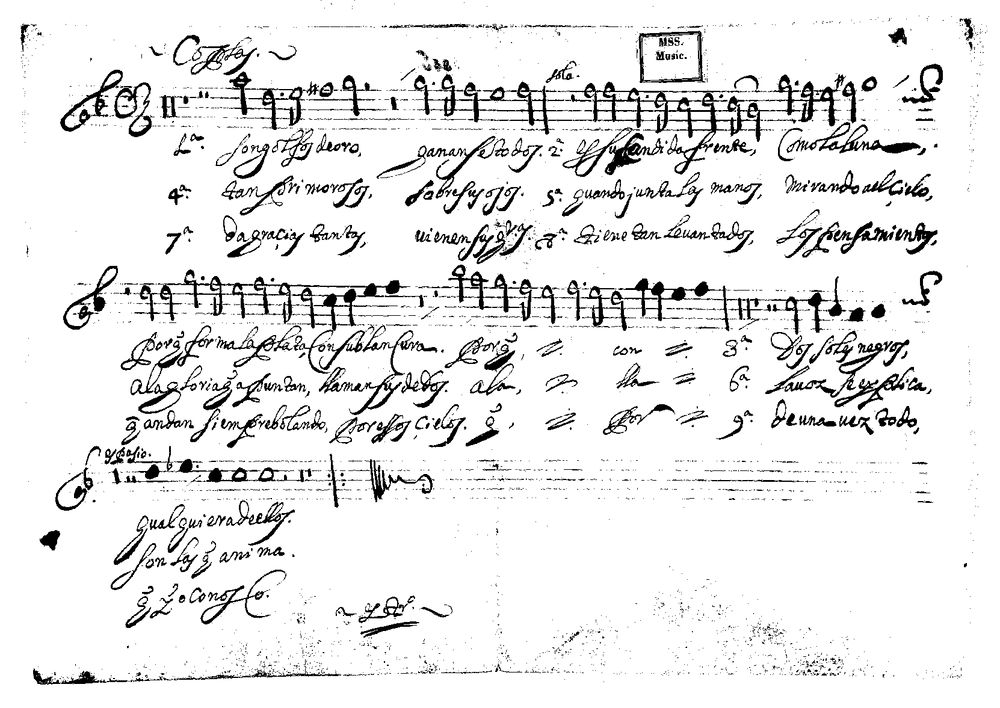 Coplas.
MSS.
Music.
sola.
1ª. son golfos de oro, ganan se todos. 2ª. y su candida frente, Como la luna,.
4ª. tan primorosos, sobre sus ojos. 5ª. quando junta las manos, Mirando al Cielo,
7ª. da gracias tantas, vienen sus 8ª. tiene tan levantados, Los pensamientos,
Porq̃ forma la plata, Con su blancura. Porq̃, con 3ª. Dos soles negros,
a la gloria q̃ apuntan, llaman sus dedos. ala, lla 6ª. la voz se explica,
q̃ andan siempre bolando, Por essos Cielos. q̃, Por 9ª. de una vez todo,
despasio.
qual quiera de ellos.
son las q̃ anima.
q̃ yo conosco.